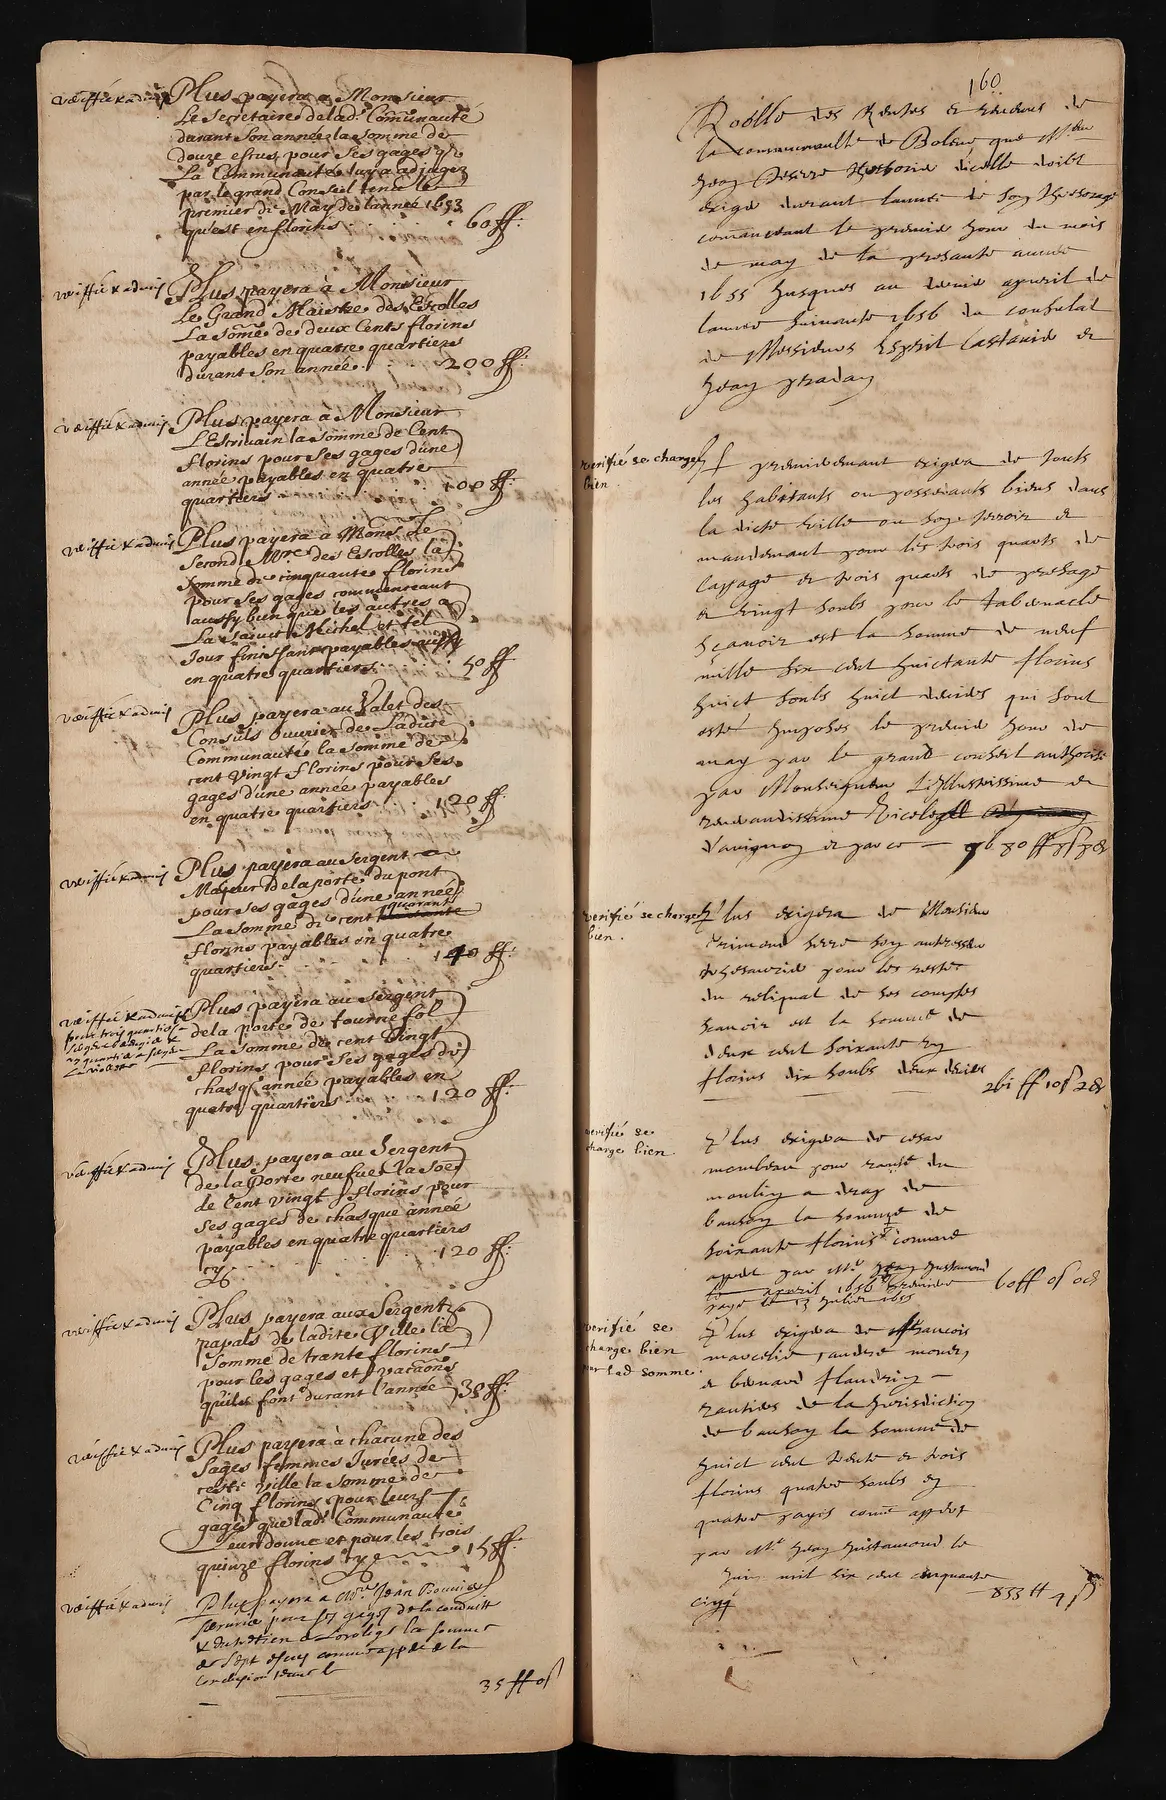 verifié & admis
Plus payera a Monsieur
Le Secretaire de lad. Communauté
durant son année la somme de
douze escus pour ses gages q̃
La Communauté luy a adjugez
par le grand Conseil tenu le
premier de May de lannée 1653
qu'est en florins 60 ff:
verifié & admis
Plus payera à Monsieur
Le Grand Maistre des Escolles
La som̃e de deux Cents florins
payables en quatre quartiers
durant son année. 200 ff:
verifié & admis
Plus payera à Monsieur
L'Escrivain la somme de Cent
florins pour ses gages d'une
année payables en quatre
quartiers 100 ff:
verifié & admis
Plus payera a Mons. Le
second Mre des Escolles la
somme de cinquante florins
pour ses gages commenceant
aussy bien que les autres a
La Sainct Michel et tel
Jour finissant payables aussy
en quatre quartiers 50 ff
verifié & admis
Plus payera au Valet des
Consuls Ouvrier de Ladite
Communauté la somme de
cent Vingt florins pour ses
gages d'une année payables
en quatre quartiers 120 ff:
verifié & admis
Plus payera au Sergent
Majeur de la porte du pont
pour ses gages d'une année
La somme de cent quarante
florins payables en quatre
quartiers 140 ff:
verifié & admis
pour trois quartiers
Plus payera au Sergent
de la porte de tournefol
La somme de cent Vingt
florins pour ses gages de
chasq̃ année payables en
quatre quartiers 120 ff:
verifié & admis
Plus payera au Sergent
de la Porte neufue la so͠e
de Cent Vingt florins pour
ses gages de chasque année
payables en quatre quartiers
cy 120 ff:
verifié & admis
Plus payera aux Sergentz
papals de ladite Ville la
somme de trante florins
pour les gages et vacaõns
qu'ils font durant l'année 30 ff:
verifié & admis
Plus payera à chacune des
Sages femmes Jurées de
ceste Ville la somme de
Cinq florins pour leurs
gages que lad. Communauté
leur donne et pour les trois
quinze florins cy 15 ff:
verifié & admis
Plus payera a Mre Jean Bonnier
serrurier pour ses gages de la conduitte
& entretien de Lorologe la somme
de sept escus comme appert de la
conclusion 35 ff 0s
160
Roolle des Rentes et revenus de
la communaulté de Bolene que Mr
Jean Pierre Thresorier dicelle doibt
exiger durant lannée de son thresorage
commanceant le premier Jour du mois
de may de la presante année
1655 Jusques au dernier apvril de
lannée suivante 1656 du consulat
de Messieurs Esprit Castanier et
Jean pradan
verifié se charge
bien.
Premierement exigera de touts
les habitants ou possedants biens dans
la dicte ville ou son terroir et
mandement pour les trois quarts de
cappage et trois quarts de presage
et vingt soubs pour le tabernacle
sçavoir est la somme de neuf
mille six cent huictante florins
huict soubs huict deniers qui sont
esté Imposés le premier Jour de
may par le grand conseil authorisé
par Monseigneur L'illustrissime et
reverandissime Vicelegat
d'avignon et par ce 9680 ff 8s 8d
verifié se charge
bien.
Plus exigera de Monsieur
Trimond Serre son antecesseur
thesaurier pour les restes
du reliquat de ses comptes
scavoir est la somme de
deux cent soixante un
florins dix soubs deux deniers 261 ff 10s 2d
verifié se
charge bien.
Plus exigera de cesar
monbeau pour rantier du
moulin a drap de
bauson la somme de
soixante florins comme
appert par Mre Jean Justamond
apvril 1656
payé le 13 Jullier 1655 60 ff 0s 0d
verifié se
charge bien
pour lad somme.
Plus exigera de francois
marcelin andre monery
et bernard flandrin
rantiers de la Jurisdiction
de bauson la somme de
huict cent trente et trois
florins quatre soubs en
quatre payes comme appert
par Mre Jean Justamond le
Juin mil six cent cinquante
cinq 833 ff 4s